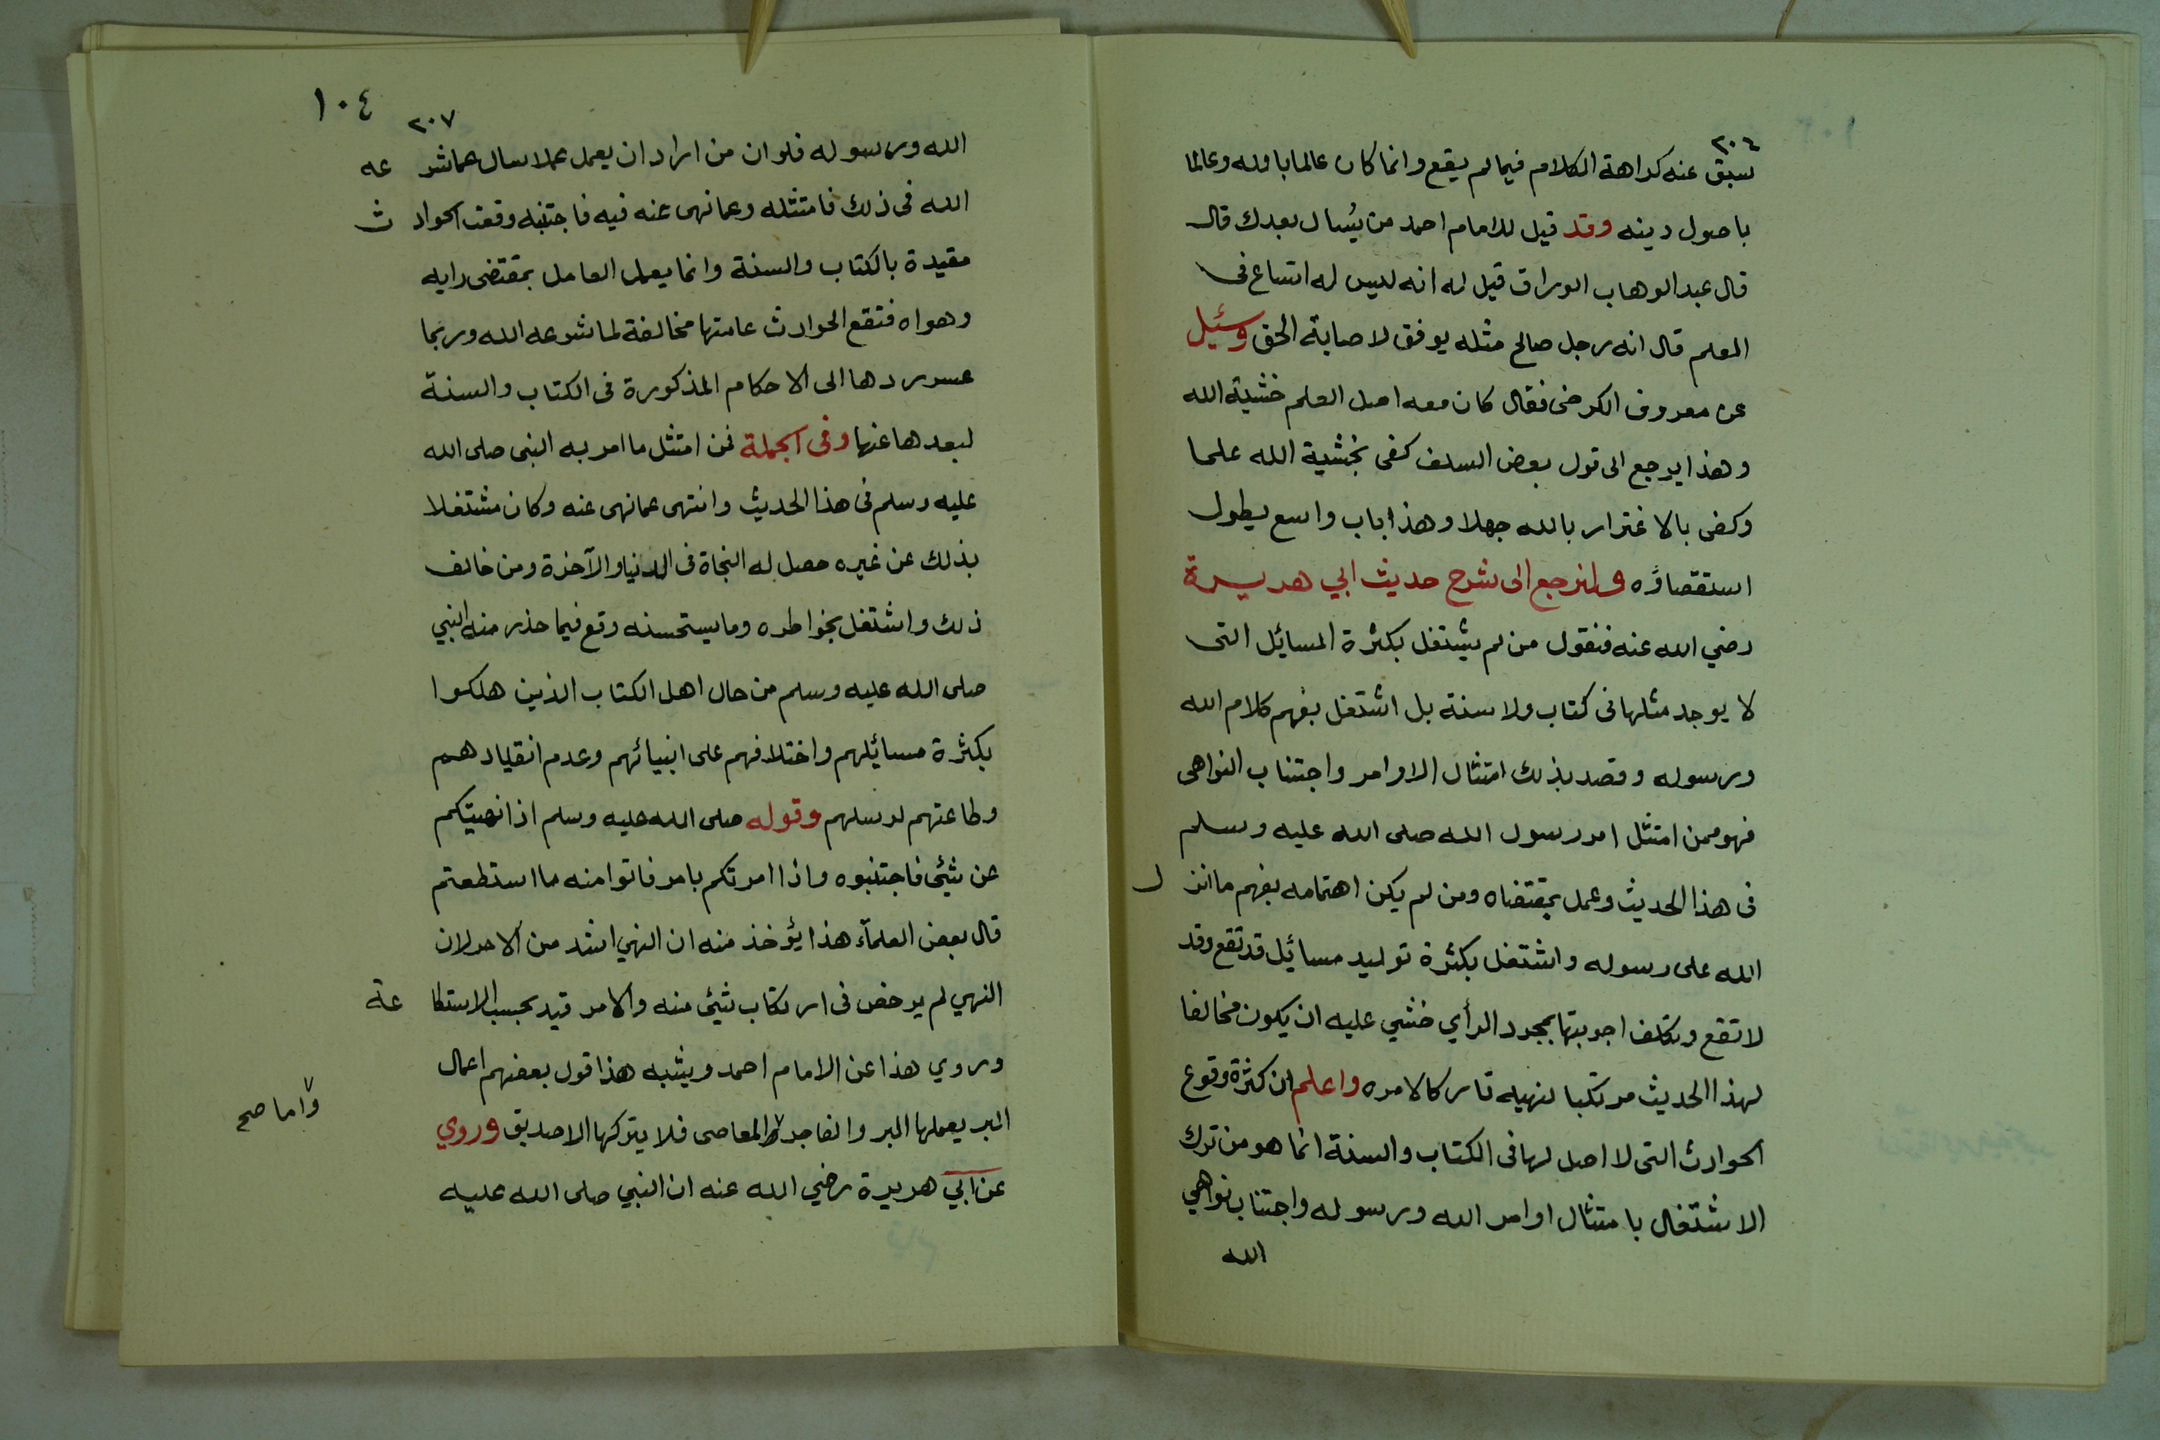 ٢٠٦
سبق عنه كراهة الكلام فيما لم يقع وانما كان عالما بالله وعالما
باصول دينه وقد قيل للامام احمد من يُسال بعدك قال
قال عبد الوهاب الوراق قيل له انه ليس له اتساع في
العلم قال انه رجل صالح مثله يوفق لاصابة الحق وسئيل
عن معروف الكرخى فقال كان معه اصل العلم خشية الله
وهذا يرجع الى قول بعض السلف كفى بخشية الله علما
وكفى بالاغترار بالله جهلا وهذا باب واسع يطول
استقصاؤه ولنرجع الى شرح حديث ابي هريرة
رضي الله عنه فنقول من لم يشتغل بكثرة المسائل التى
لا يوجد مثلها فى كتاب ولا سنة بل اشتغل بفهم كلام الله
ورسوله وقصد بذلك امتثال الاوامر واجتناب النواهى
فهو ممن امتثل امر رسول الله صلى الله عليه وسلم
فى هذا الحديث وعمل بمقتضاه ومن لم يكن اهتمامه بفهم ما انز ل
الله على رسوله واشتغل بكثرة توليد مسائيل قد تقع وقد
لا تقع وتكلف اجوبتها بمجرد الرأي خشي عليه ان يكون مخالفا
لهذا الحديث مرتكبا لنهيه تاركا لامره واعلم ان كثرة وقوع
الحوادث التى لا اصل لها فى الكتاب والسنة انما هو من ترك
الاشتغال بامتثال اوامر الله ورسوله واجتناب نواهي
الله
١٠٤
٢٠٧
الله ورسوله فلو ان من اراد ان يعمل عملا سال عما شر عه
الله فى ذلك فامتثله وعما نهى عنه فيه فاجتنبه وقعت الحواد ث
مقيدة بالكتاب والسنة وانما يعمل العامل بمقتضى رايه
وهواه فتقع الحوادث عامتها مخالفة لما شرعه الله وربما
عسر ردها الى الاحكام المذكورة فى الكتاب والسنة
لبعدها عنها وفى الجملة فمن امتثل ما امر به النبى صلى الله
عليه وسلم فى هذا الحديث وانتهى عما نهى عنه وكان مشتغلا
بذلك عن غيره حصل له النجاة فى الدنيا والآخرة ومن خالف
ذلك واشتغل بخواطره وما يستحسنه وقع فيما حذر منه النبي
صلى الله عليه وسلم من حال اهل الكتاب الذين هلكوا
بكثرة مسائيلهم واختلافهم على انبيائهم وعدم انقيادهم
وطاعتهم لرسلهم وقوله صلى الله عليه وسلم اذا نهيتكم
عن شئى فاجتنبوه واذا امرتكم بامر فاتوا منه ما استطعتم
قال بعض العلمآء هذا يؤخذ منه ان النهي اشد من الامر لان
النهي لم يرخص فى ارتكاب شئى منه والامر قيد بحسب الاستطا عة
وروي هذا عن الامام احمد ويشبه هذا قول بعضهم اعمال
البر يعملها البر والفاجر والمعاصى فلا يتركها الا صديق وروي
واما صح
عن ابي هريرة رضي الله عنه ان النبي صلى الله عليه